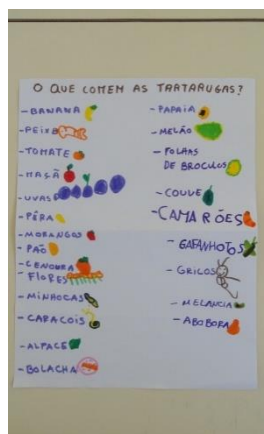 O QUE COMEM AS TARTARUGAS?
- BANANA
- PEIXE
- TOMATE
- MAÇÃ
- UVAS
- PÊRA
- MORANGOS
- PÃO
- CENOURA
- FLORES
- MINHOCAS
- CARACOIS
- ALFACE
- BOLACHA
- PAPAIA
- MELÃO
- FOLHAS
DE BROCULOS
- COUVE
- CAMARÕES
- GAFANHOTOS
- GRILOS
- MELANCIA
- ABOBORA